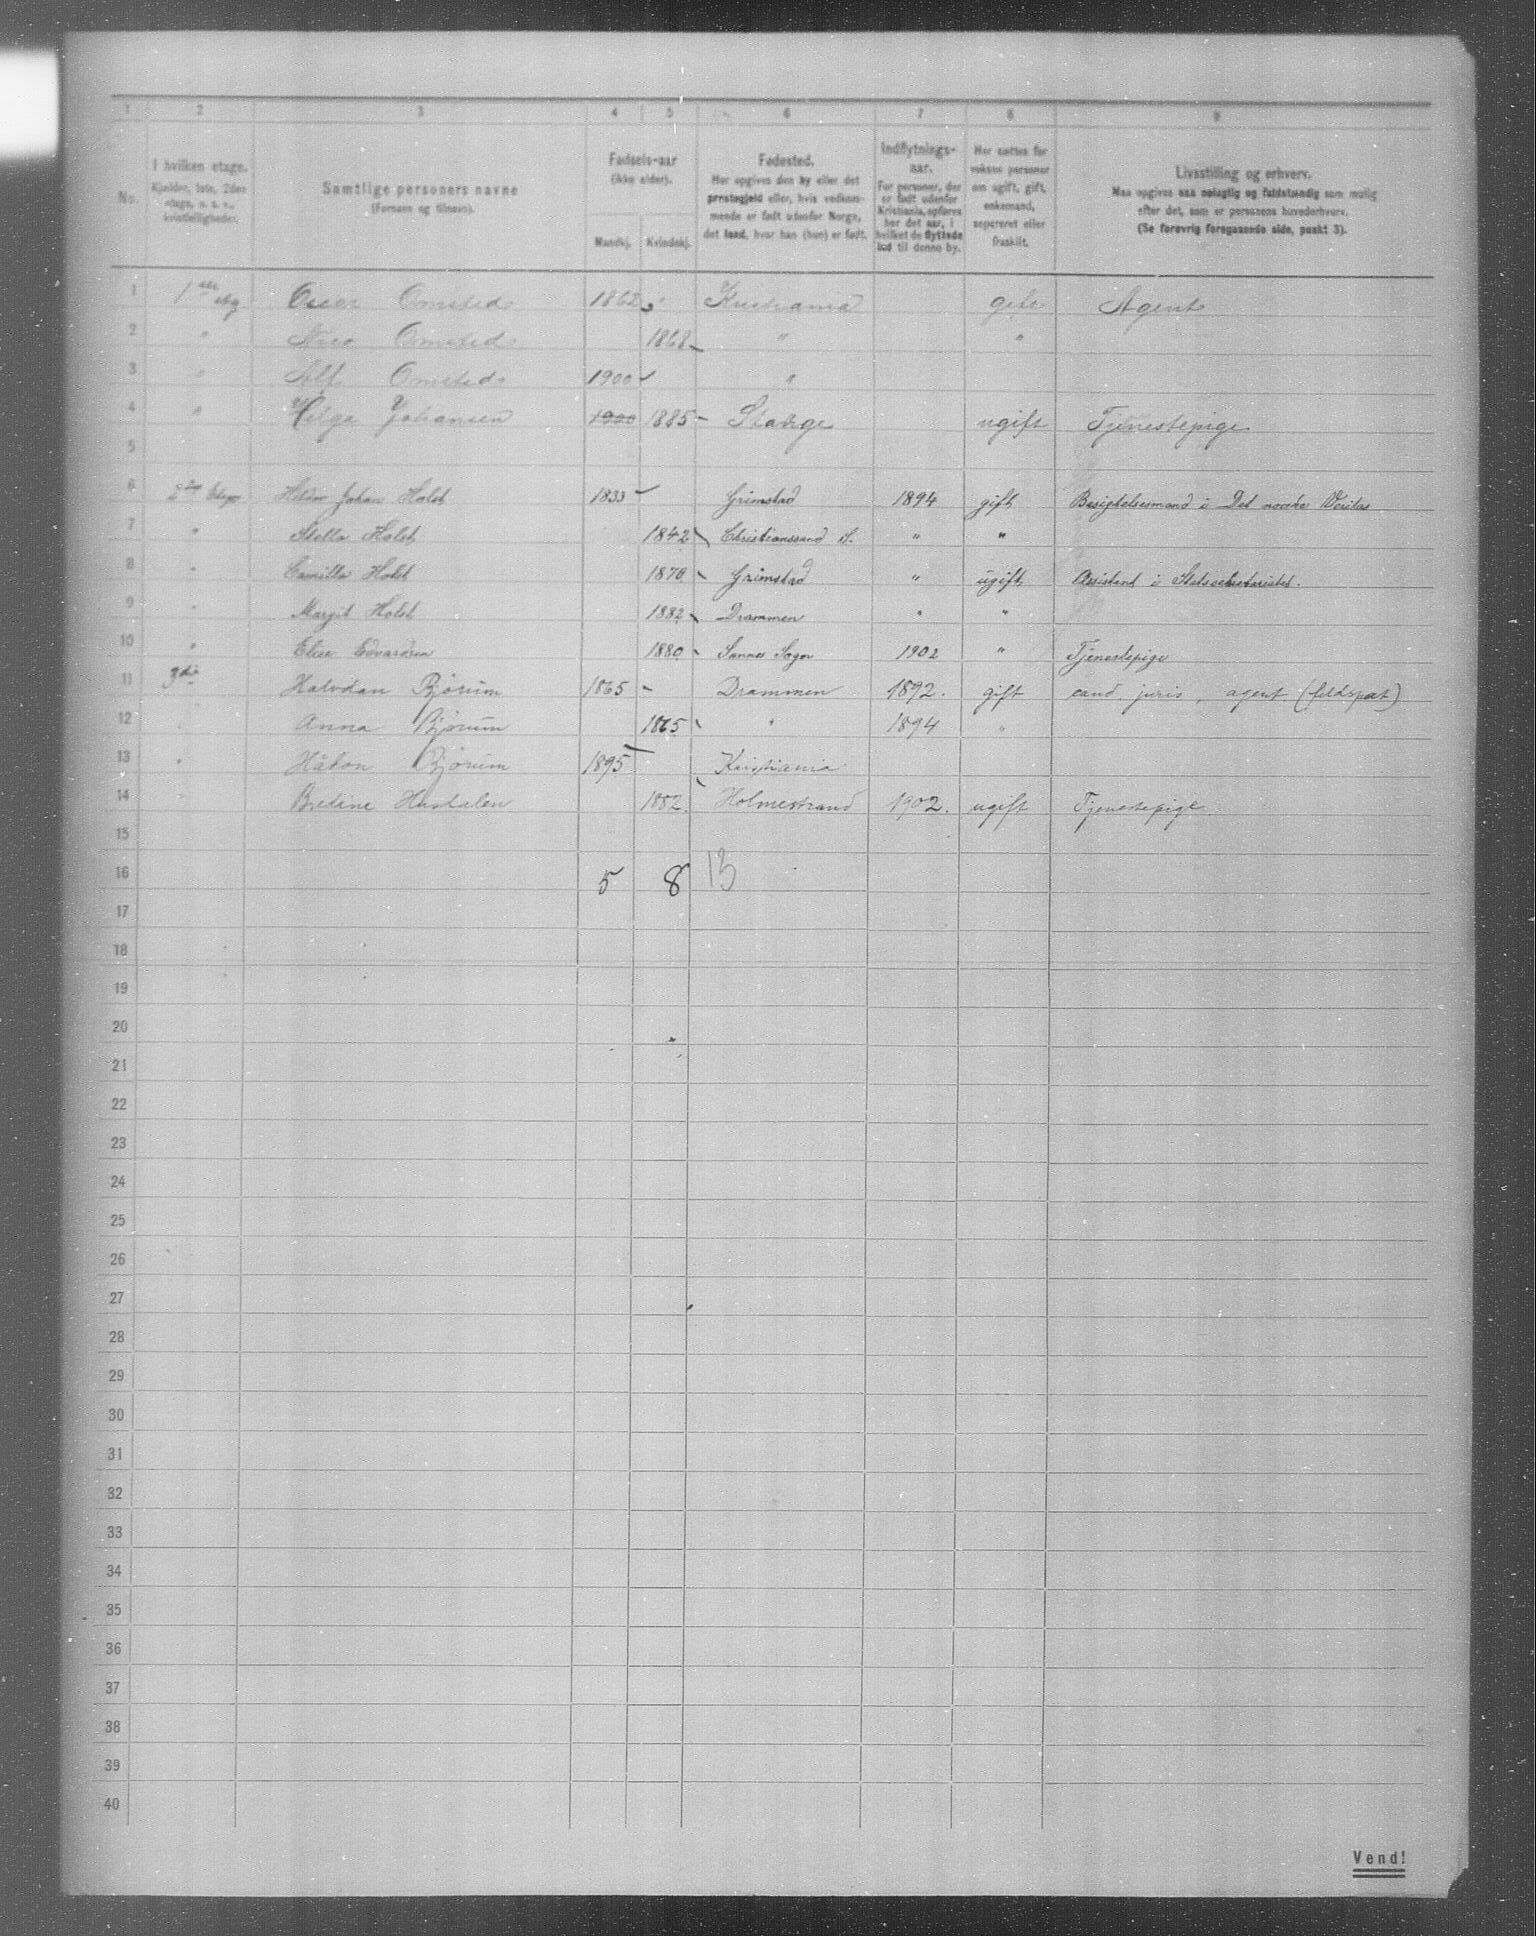 1 2 3 4 5 6 7 8 9
No.
I hvilken etage.
Kjelder, 1ste, 2den
etage, o. s. v.,
kvistleiligheder.
Samtlige personers navne
(Fornavn og tilnavn).
Fødsels-aar
(ikke alder).
Mandkj. Kvindekj.
Fødested.
Her opgives den by eller det
præstegjeld eller, hvis vedkom-
mende er født udenfor Norge,
det land, hvor han (hun) er født.
Indflytnings-
aar.
For personer, der
er født udenfor
Kristiania, opføres
her det aar, i
hvilket de flyttede
ind til denne by.
Her sættes for
voksne personer
om ugift, gift,
enkemand,
separeret eller
fraskilt.
Livsstilling og erhverv.
Maa opgives saa nøiagtig og fuldstændig som mulig
efter det, som er personens hovederhverv.
(Se forøvrig foregaaende side, punkt 3).
1 1ste Etg Oscar Omsted 1862 " Kristiania gift Agent
2 " Omsted 1868 " "
3 " Alf Omsted 1900 "
4 " Helga Johansen 1900 1885 Stange ugift Tjenestepige
5
6 2den Etage Johan Holst 1833 Grimstad 1894 gift Besigtelsesmand i Det norske Veritas
7 " Stella Holst 1842 Christianssand S. " "
8 " Camilla Holst 1870 Grimstad " ugift Assistent i
9 " Margit Holst 1882 Drammen " "
10 " Elise Edvardsen 1880 Sannes Sogn 1902 " Tjenestepige
11 3die Halvdan Bjørum 1865 Drammen 1892. gift cand. juris, agent (feldspat)
12 " Anna Bjørum 1865 " 1894 "
13 " Håkon Bjørum 1895 Kristiania
14 Bredine 1882. Holmestrand 1902. ugift Tjenestepige.
15
16 5 8 13
17
18
19
20
21
22
23
24
25
26
27
28
29
30
31
32
33
34
35
36
37
38
39
40
Vend!